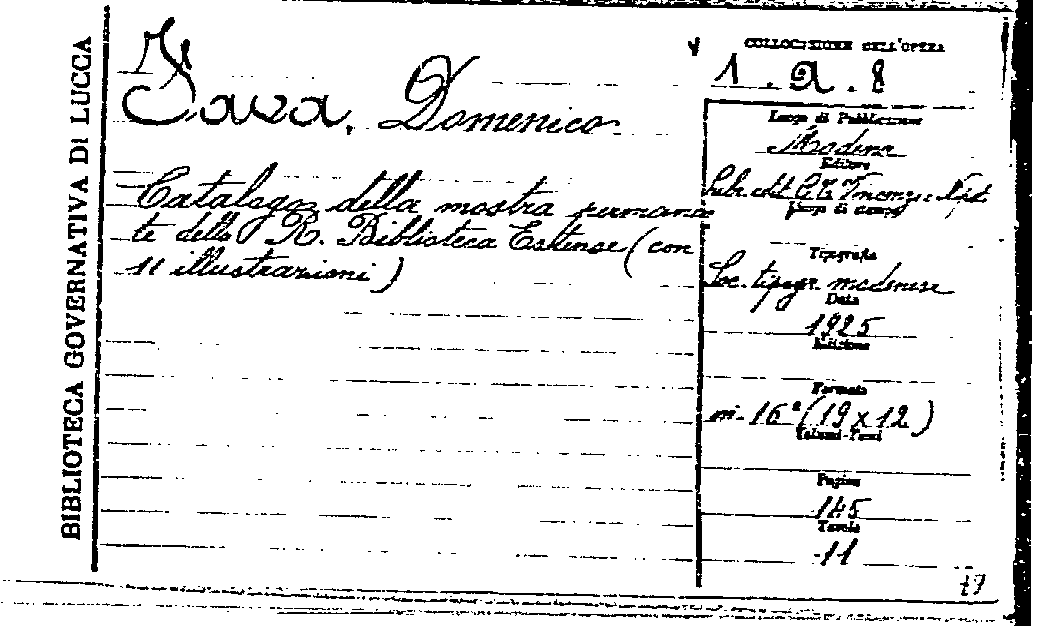 BIBLIOTECA GOVERNATIVA DI LUCCA
Fava, Domenico
Catalogo della mostra permanen
te della R. Biblioteca Estense (con
11 illustrazioni)
COLLOCAZIONE DELL'OPERA
1 . a . 8
Luogo di Pubblicazione
Modena
Editore
Luogo di stampa
Tipografia
Soc. tipogr. modenese
Data
1925
Edizione
Formato
in-16° (19 x 12)
Volumi-Tomi
Pagine
145
Tavole
11